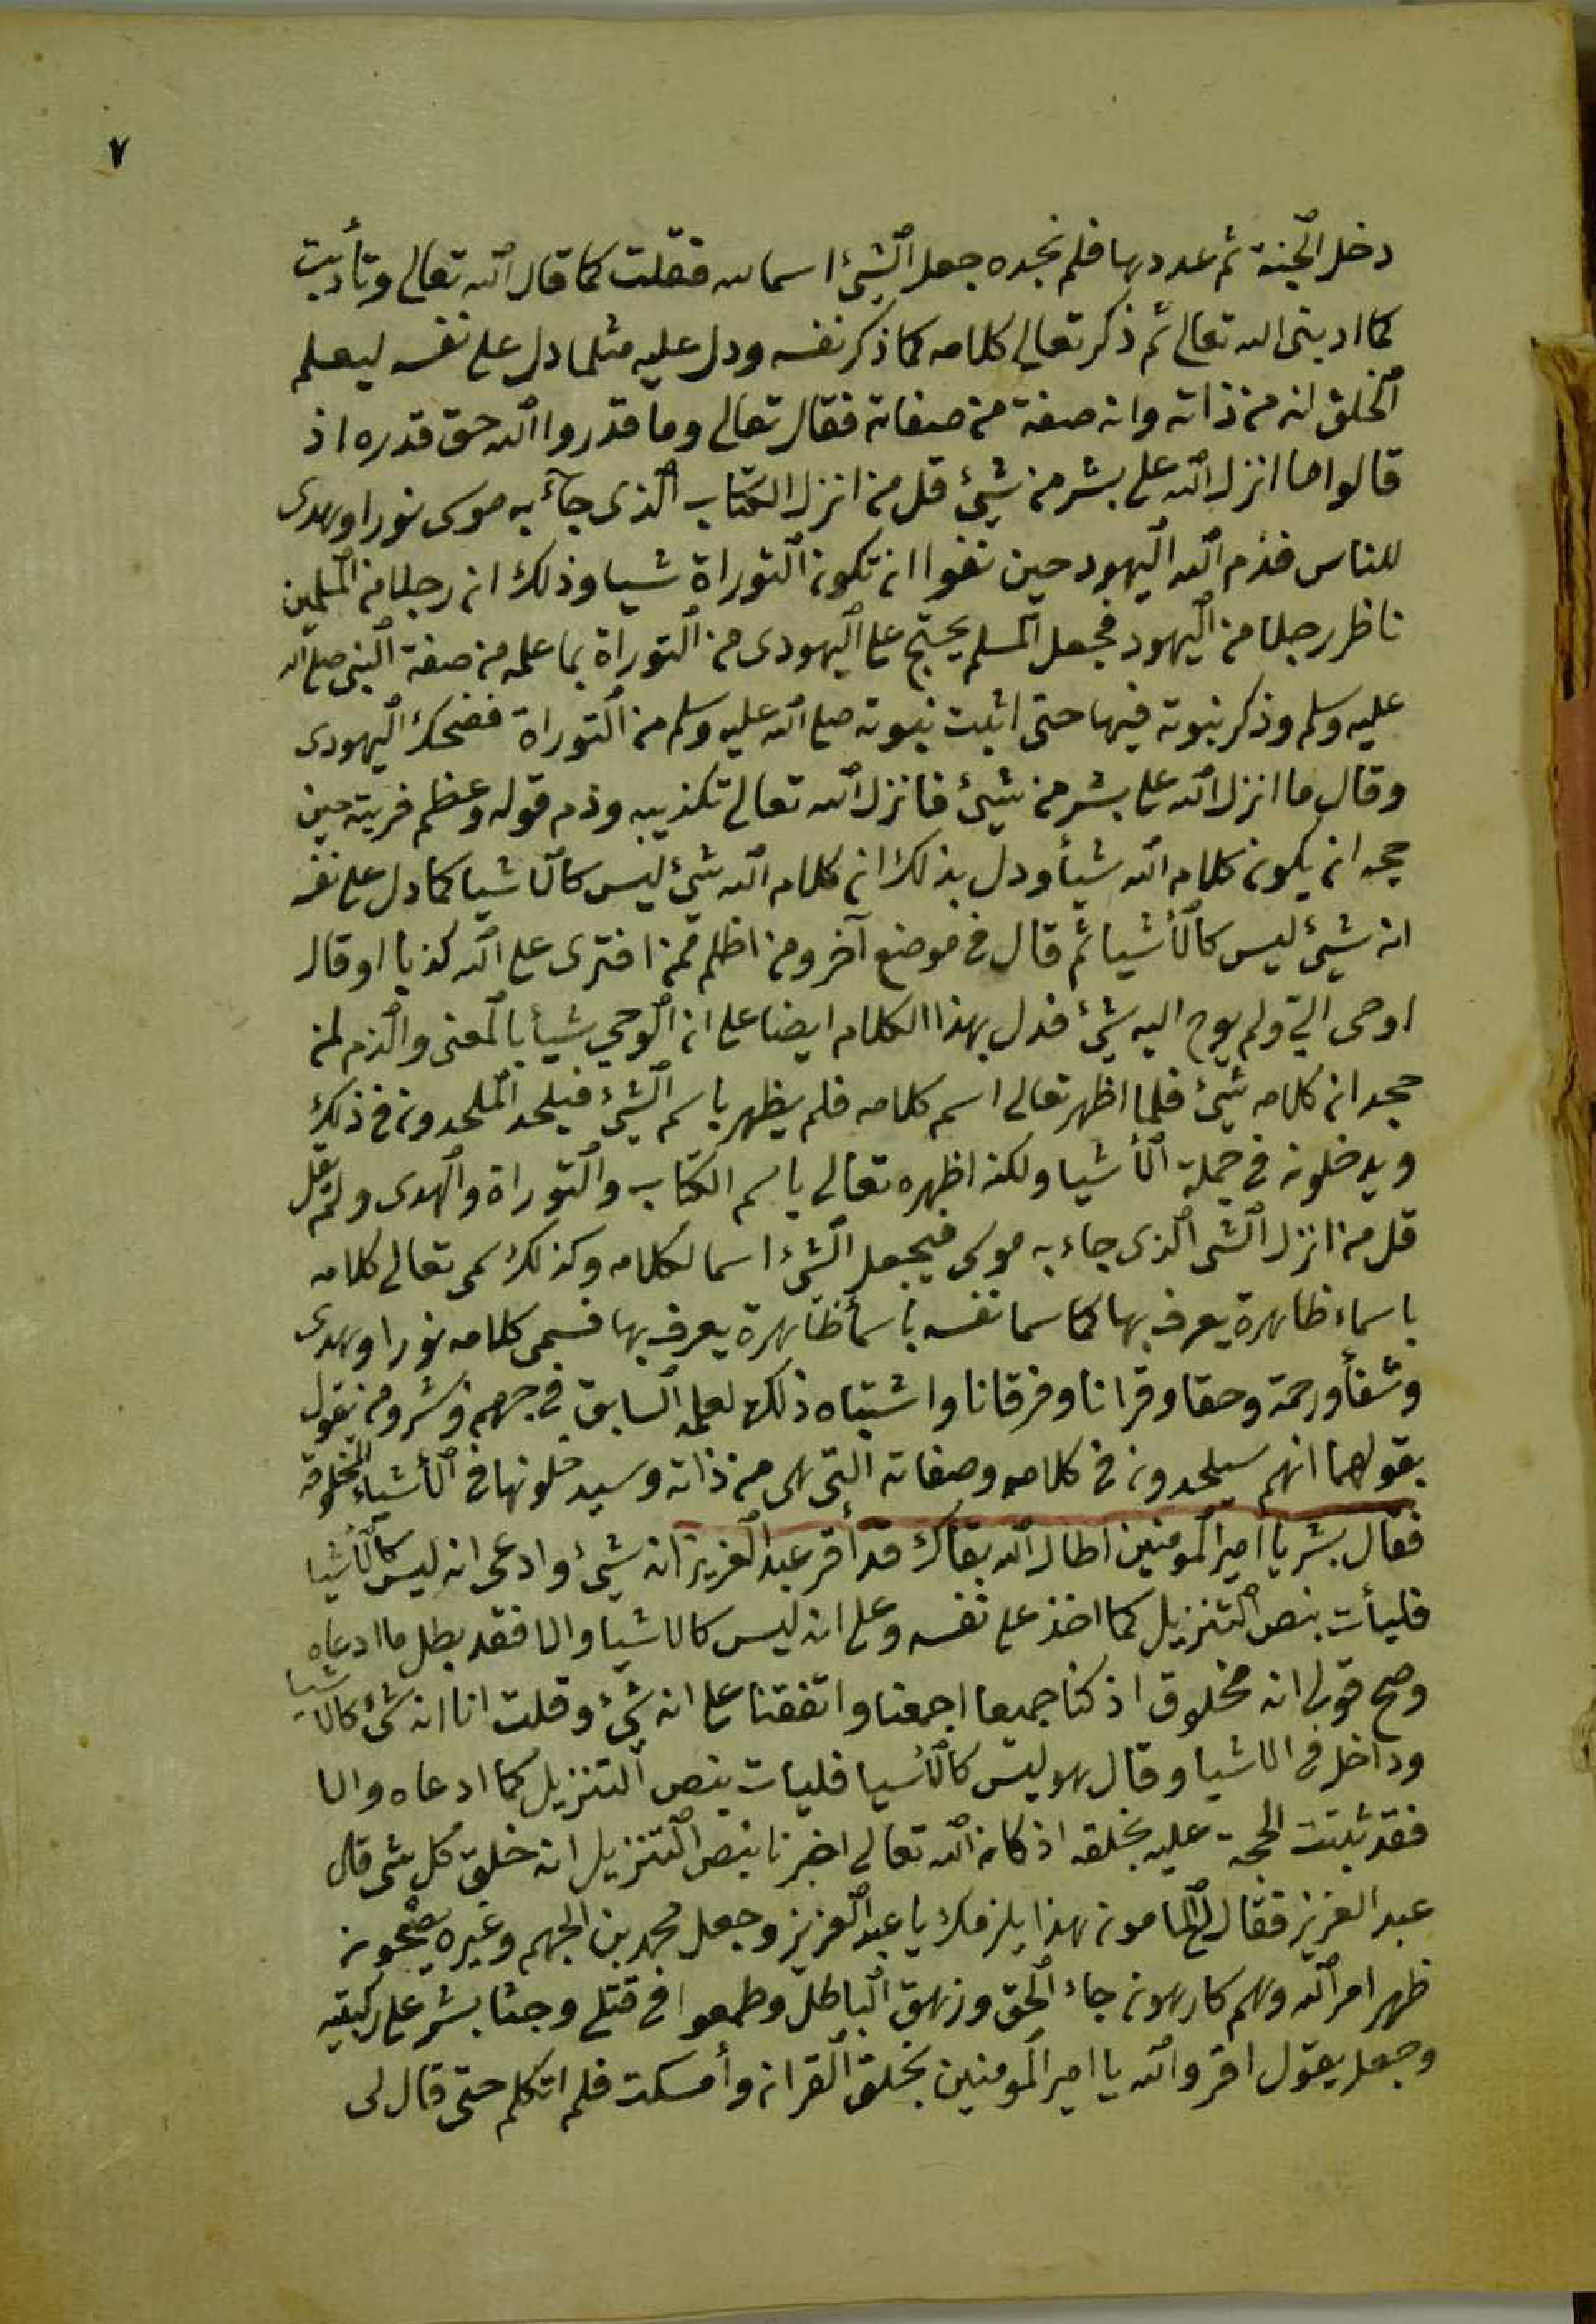 ٧
دخل الجنة ثم عددها فلم نجده جعل الشئ اسما لله فقلت كما قال الله تعالى وتأدبت
كما ادبنى الله تعالى ثم ذكر تعالى كلامه كما ذكر نفسه ودل عليه مثلما دل على نفسه ليعلم
الخلق انه من ذاته وانه صفة من صفاته فقال تعالى وما قدروا الله حق قدره اذ
قالوا ما انزل الله على بشر من شيئ قل من انزل الكتاب الذى جآء به موسى نورا وهدى
للناس فذم الله اليهود حين نفوا ان تكون التوراة شيا وذلك ان رجلا من المسلمين
ناظر رجلا من اليهود فجعل المسلم يحتج على اليهودى من التوراة بما علمه من صفة النبى صلى الله
عليه وسلم وذكر نبوته فيها حتى اثبت نبوته صلى الله عليه وسلم من التوراة فضحك اليهودى
وقال ما انزل الله على بشر من شيئ فانزل الله تعالى تكذيبه وذم قوله وعظم فريته حين
جحد ان يكون كلام الله شيأ ودل بذلك ان كلام الله شئ ليس كالاشيا كما دل على نفسه
انه شيئ ليس كالأشيا ثم قال فى موضع آخر ومن اظلم ممن افترى على الله كذبا او قال
اوحى اليّ ولم يوح اليه شئ فدل بهذا الكلام ايضا على ان الوحي شيأ بالمعنى والذم لمن
جحد ان كلامه شئ فلما اظهر تعالى اسم كلامه فلم يظهر باسم الشئ فيلحد الملحدون فى ذلك
ويدخلونه فى جملة الأشيا ولكنه اظهره تعالى باسم الكتاب والتوراة والهدى ولم يقل
قل من انزل الشى الذى جاء به موسى فيجعل الشئ اسما لكلامه وكذلك سمى تعالى كلامه
باسماء ظاهرة يعرف بها كما سما نفسه باسمأ ظاهرة يعرف بها فسمى كلامه نورا وهدى
وشفأ ورحمة وحقا وقرانا وفرقانا واشتباه ذلك لعلمه السابق فى جهم وبشر ومن يقول
بقولهما انهم سيلحدون فى كلامه وصفاته التى هى من ذاته وسيدخلونها فى الأشياء المخلوقة
فقال بشر يا امير المومنين اطال الله بقاك قد أقر عبد العزيز انه شيئ وادعى انه ليس كالأشيا
فليأت بنص التنزيل كما اخذ على نفسه وعلى انه ليس كالاشيا والا فقد بطل ما ادعاه
وصح قولى انه مخلوق اذ كنا جميعا اجمعنا واتفقنا على انه شئ وقلت انا انه شئ كالاشيا
وداخل فى الاشيا وقال هو ليس كالأشيا فليات بنص التنزيل كما ادعاه والا
فقد ثبتت الحجة عليه بخلقه اذ كان الله تعالى اخبرنا بنص التنزيل انه خلق كل شى قال
عبد العزيز فقال لى المامون هذا يلزمك يا عبد العزيز وجعل محمد بن الجهم وغيره يضجون
ظهر امر الله وهم كارهون جاء الحق وزهق الباطل وطمعوا فى قتلى وجثا بشر على ركبتيه
وجعل يقول اقر والله يا امير المومنين بخلق القران وأمسكت فلم اتكلم حتى قال لى